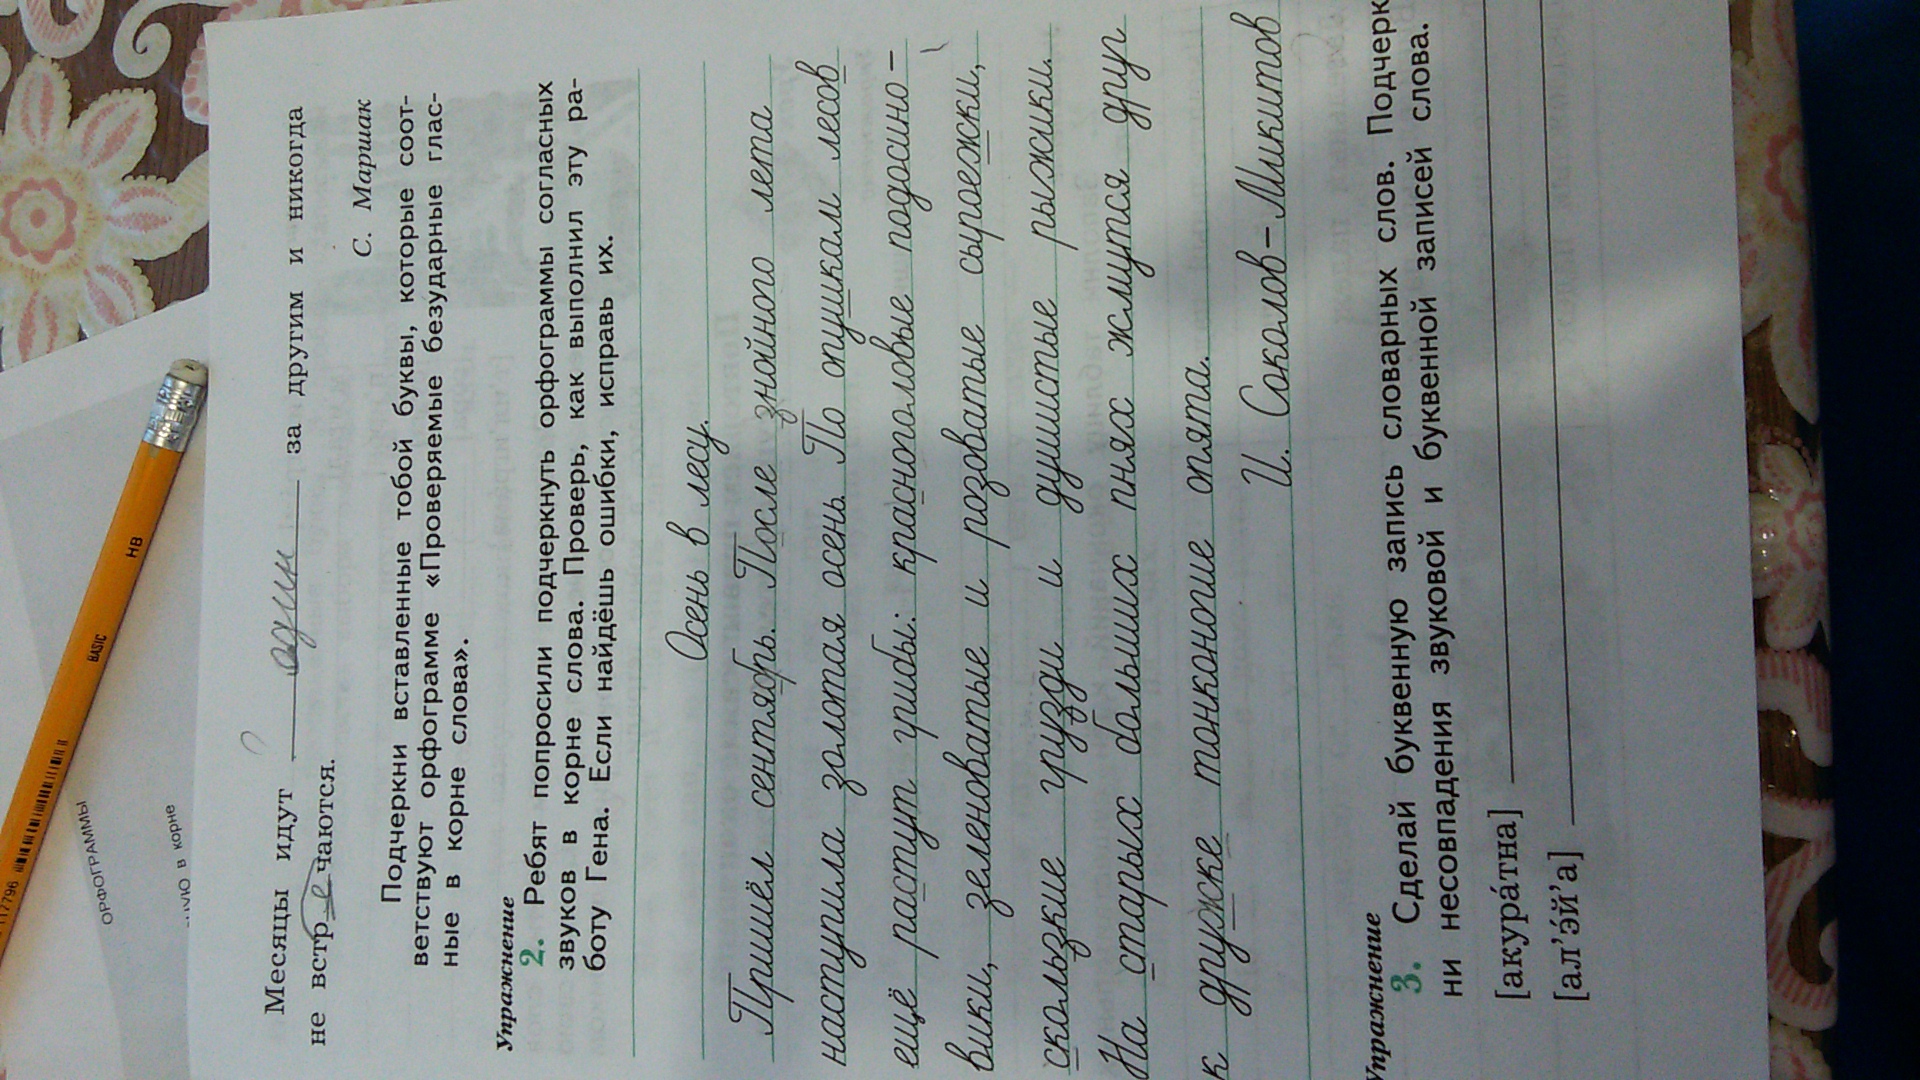 Месяцы идут один за другим и никогда
не встречаются.
С. Маршак
Подчеркни вставленные тобой буквы, которые соот-
ветствуют орфограмме «Проверяемые безударные глас-
ные в корне слова».
Упражнение
2. Ребят попросили подчеркнуть орфограммы согласных
звуков в корне слова. Проверь, как выполнил эту ра-
боту Гена. Если найдёшь ошибки, исправь их.
Осень в лесу.
Пришёл сентябрь. После знойного лета
наступила золотая осень. По опушкам лесов
ещё растут грибы: красноголовые подосино-
вики, зеленоватые и розоватые сыроежки,
скользкие грузди и душистые рыжики.
На старых больших пнях жмутся друг
к дружке тонконогие опята.
И. Соколов-Микитов
Упражнение
3. Сделай буквенную запись словарных слов. Подчерк
ни несовпадения звуковой и буквенной записей слова.
[акура́тна]
[ал’э́й’а]
ОРФОГРАММЫ
в корне
117796
BASIC
HB